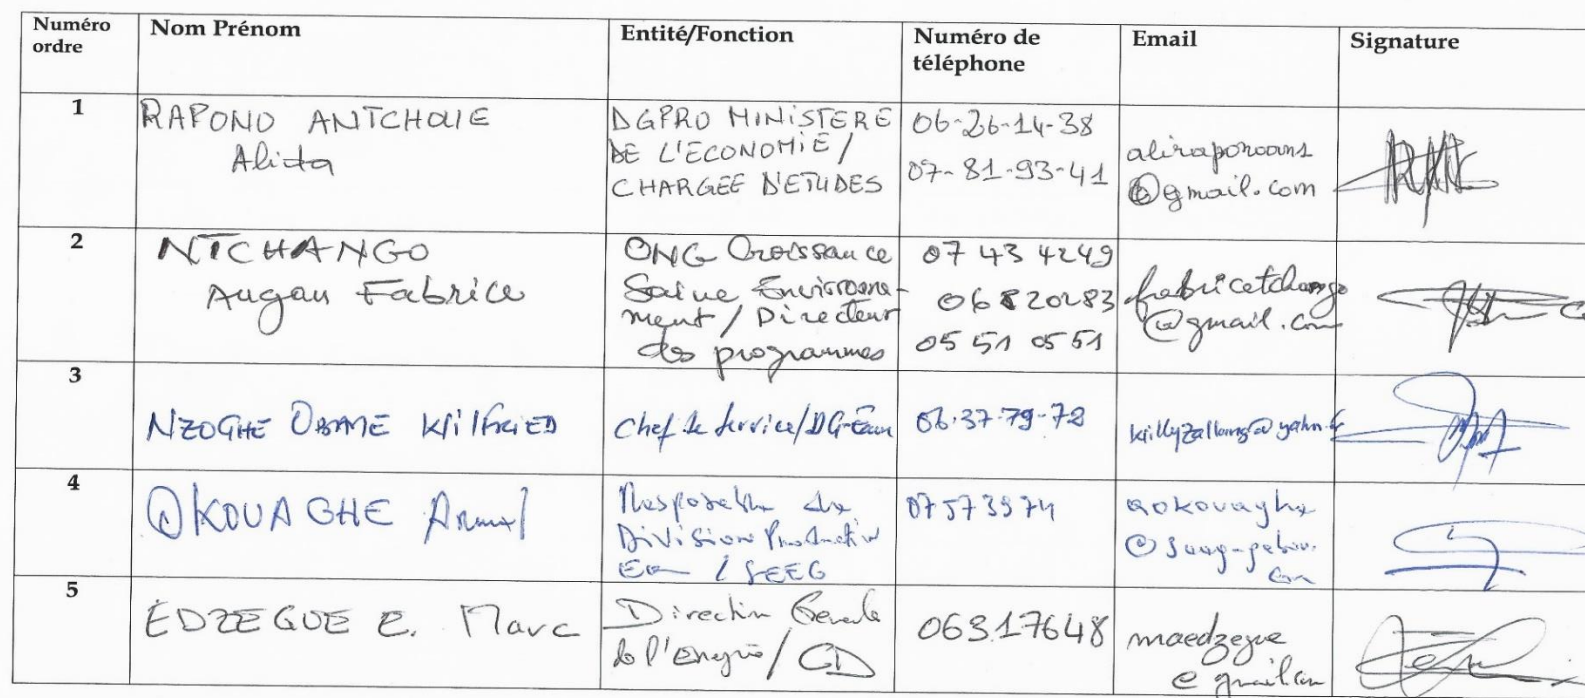 Numéro ordre Nom Prénom Entité/Fonction Numéro de téléphone Email Signature
1
RAPONO ANTCHOUE
Alida
DGPRO MINISTERE
DE L'ECONOMIE /
CHARGEE D'ETUDES
06-26-14-38
07-81-93-41
aliraponoans
@gmail.com
2
NTCHANGO
Augan Fabrice
ONG Croissance
Saine Environne-
ment / Directeur
des programmes
07 43 4249
06820283
05 51 05 51
fabricetchango
@gmail.com
3
NZOGHE OBAME Wilfried
Chef de Service/DG-Eau
06-37-79-72
4
OKOUAGHE
Division
/ SEEG
07573974
aokouaghe
5
EDZEGUE E. Marc
Direction Generale
de l'energie / CD
06317648
maedzegue
@ gmail.com